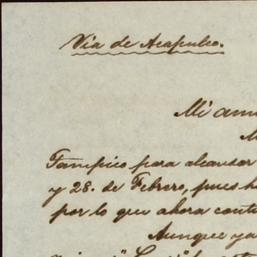 Via de Acapulco.
Mi am
M
Tampico para alcansar
y 28. de Febrero, pues h
por lo que ahora cont
Aunque ya